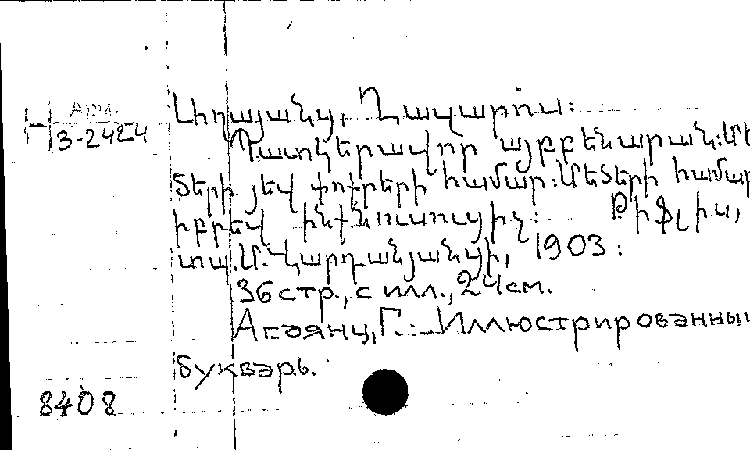 Арм.
Н 3-2424
Աղայանց, Ղազարոս:
Պատկերավոր այբբենարան: Մե
ծերի յեվ փոքրերի համար: Մեծերի համար
իբրեվ ինքնուսուցիչ: Թիֆլիս,
տպ. Մ. Վարդանյանցի, 1903:
36 стр., с илл., 24 см.
Агаянц, Г. Иллюстрированный
букварь.
8408